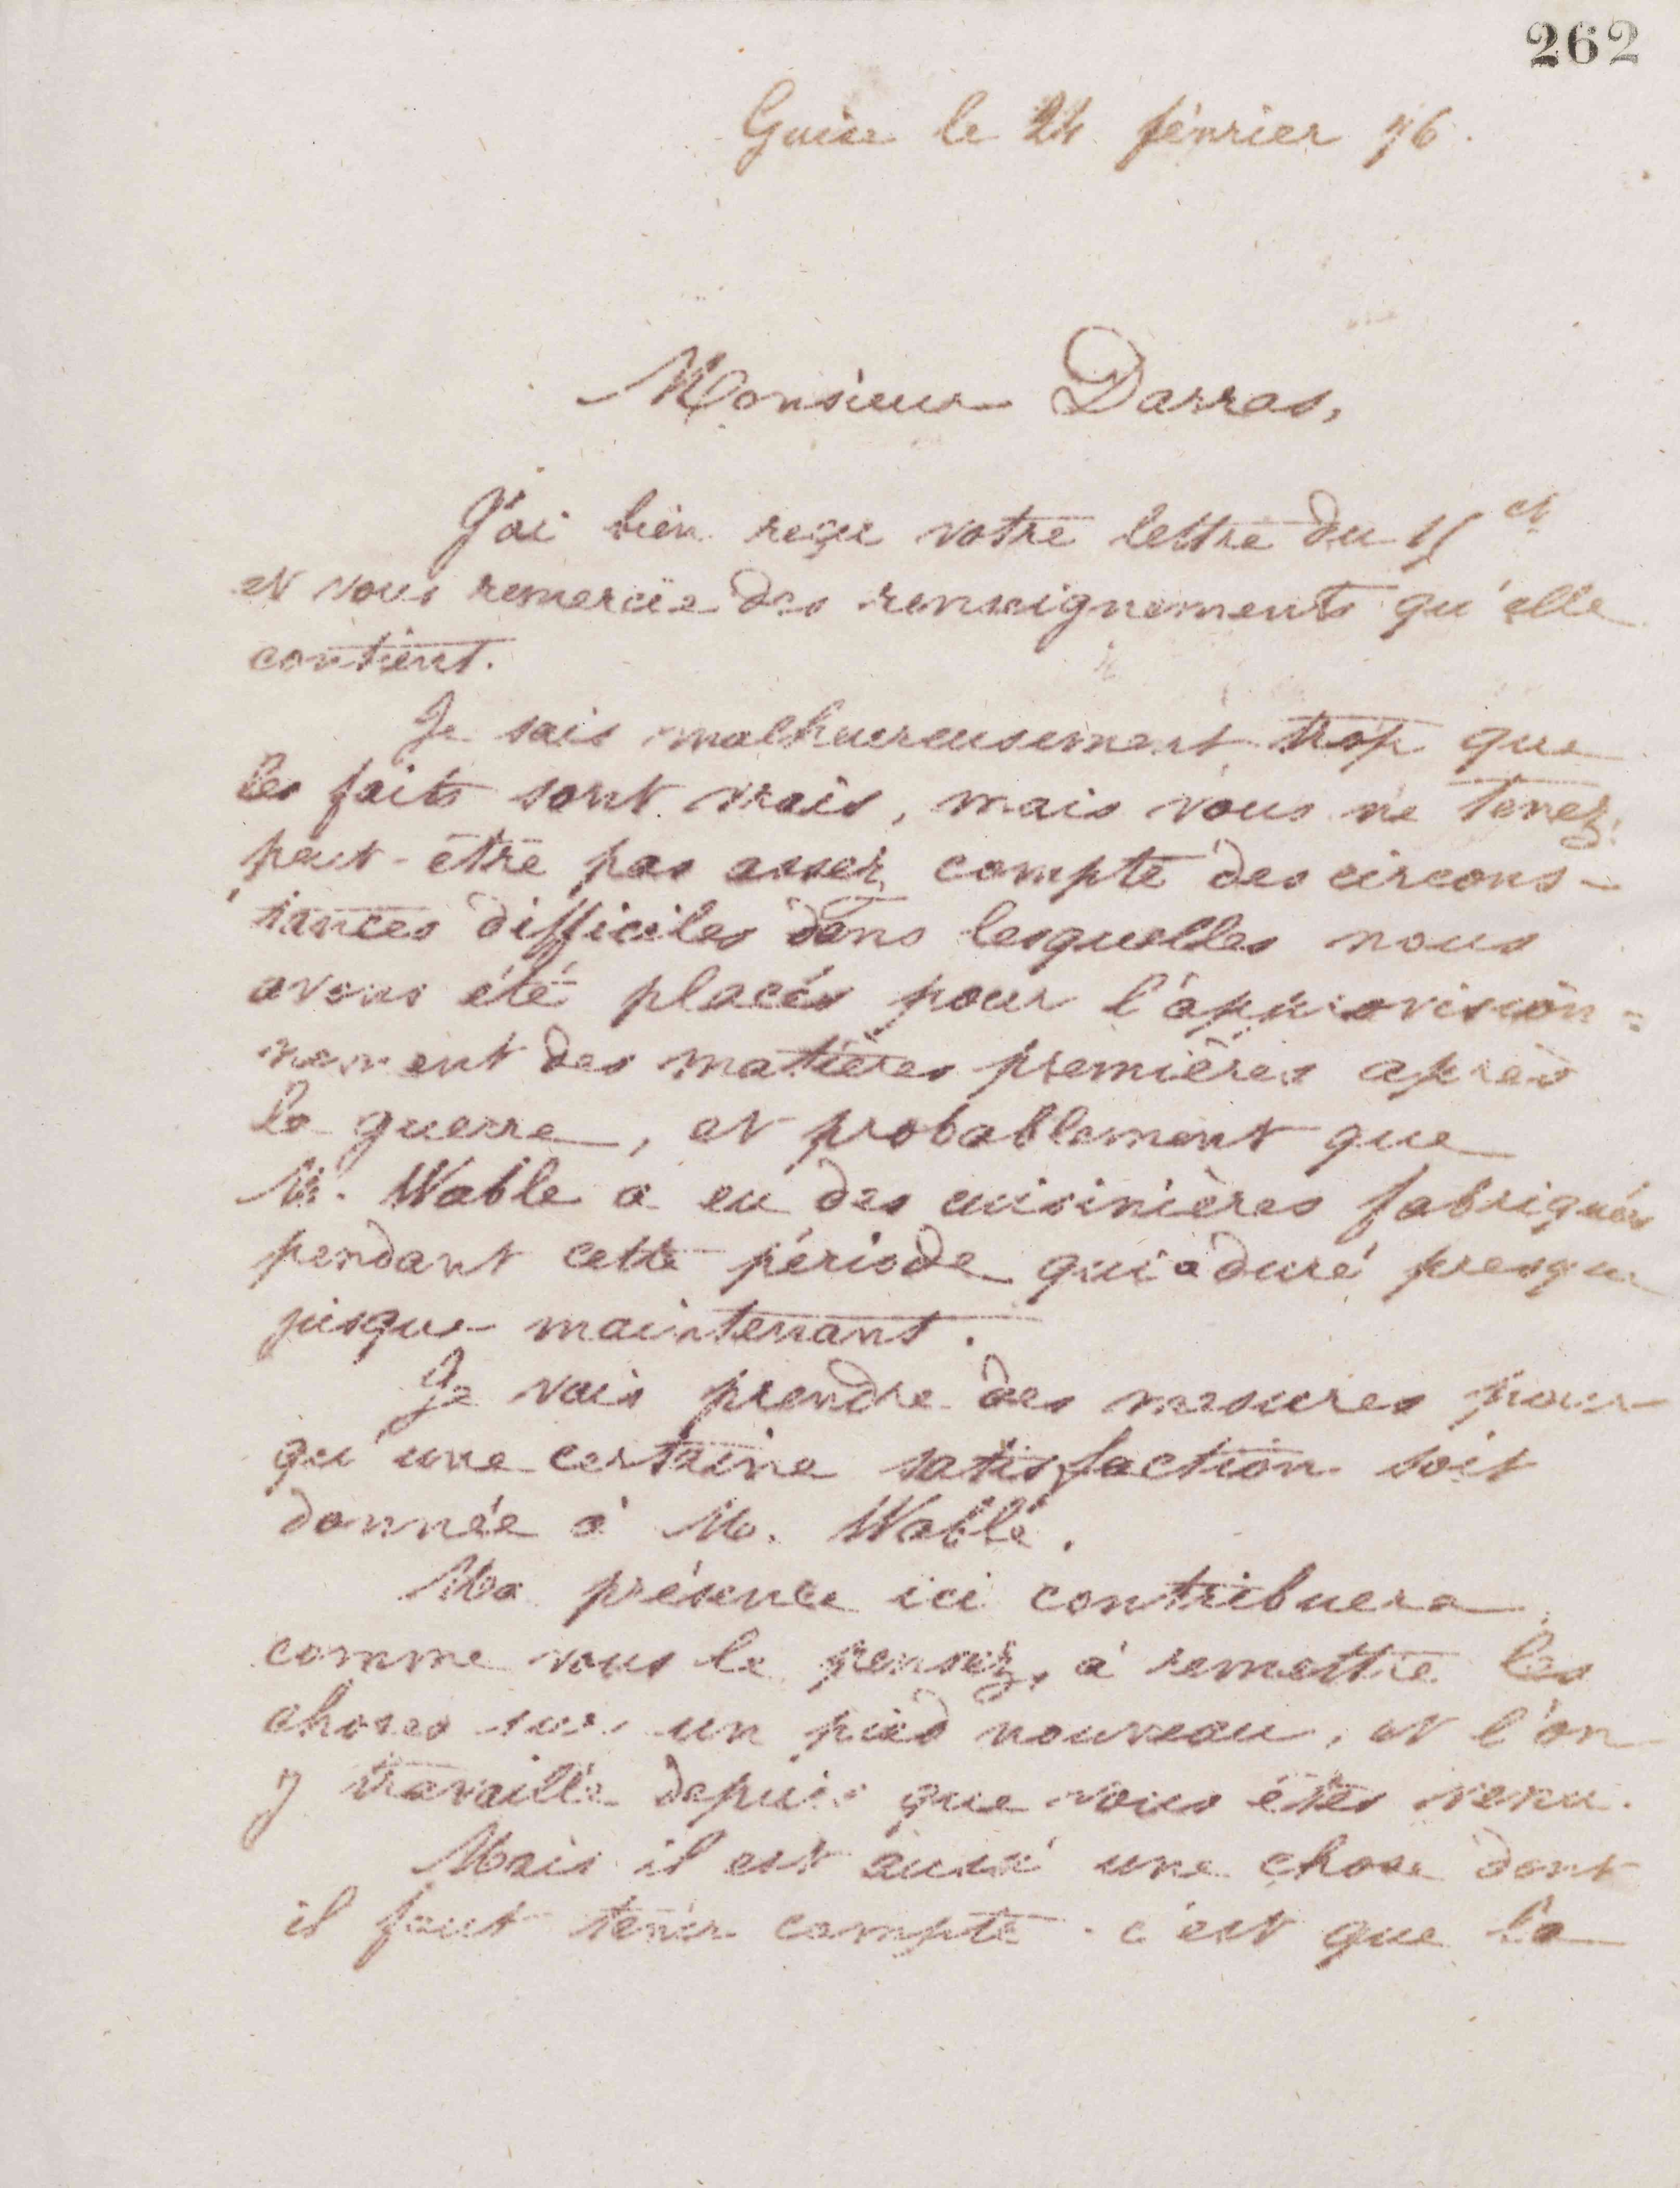 262
Guise le 24 février 76.
Monsieur Darras,
J'ai bien reçu votre lettre du 15 ct
et vous remercie des renseignements qu'elle
contient.
Je sais malheureusement trop que
les faits sont vrais, mais vous ne tenez
peut-être pas assez compte des circons-
tances difficiles dans lesquelles nous
avons été placés pour l'approvision=
nement des matières premières après
la guerre, et probablement que
M. Wable a eu des cuisinières fabriquées
pendant cette période qui a duré presque
jusque maintenant.
Je vais prendre des mesures pour
qu'une certaine satisfaction soit
donnée à M. Wable.
Ma présence ici contribuera,
comme vous le pensez, à remettre les
choses sur un pied nouveau, et l'on
y travaille depuis que vous êtes venu.
Mais il est aussi une chose dont
il faut tenir compte c'est que la